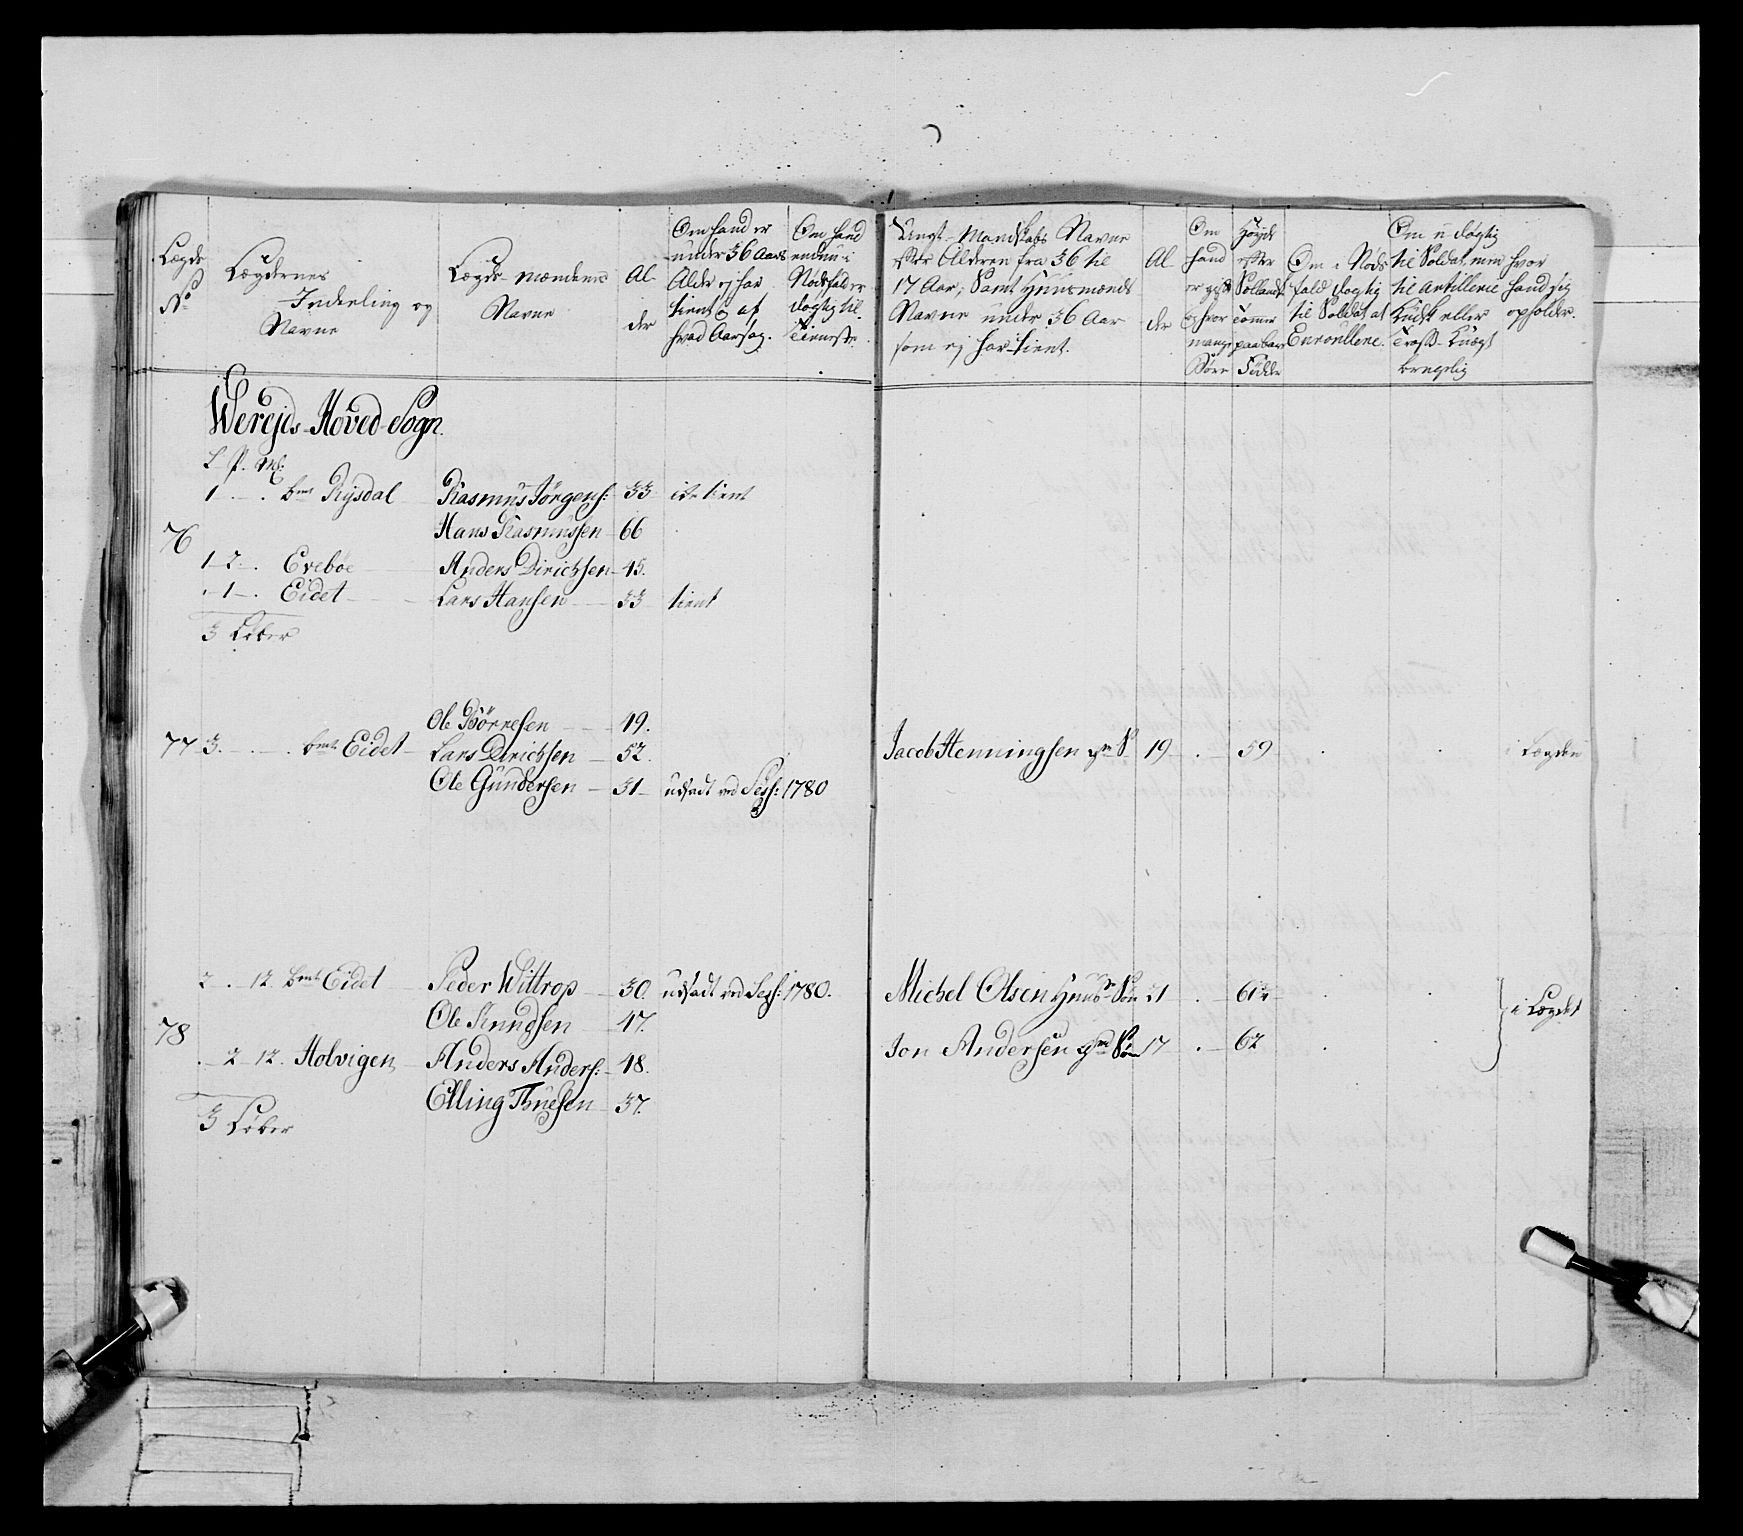 Lægds No
Lægdernes
Inddeeling og
Navne
Lægds-mændenes
Navne
Al-
der
Om hand er
under 36 Aars
Alder ej har
tient og af
hvad Aarsag.
Om hand
endnu i
Nødsfald er
dygtig til
Tieneste.
Ungt-Mandskabs Navne
efter Alderen fra 36 til
17 Aar; Samt Huusmænds
Navne under 36 Aar
som ej har tient.
Al
der
Om
hand
er gift
og hvor
mange
Børn
Høyde
efter
Sollandsk
tommer
paa bare
Fødder
Om i Nøds
fald dygtig
til Soldat at
Enroullere.
Om u-dygtig
til Soldat, men
til Artillerie
Kudsk eller
Tross-Knægt
brugelig
hvor
hand sig
opholder.
Werejds-Hoved-Sogn.
L. P. Mk:
1 - . bmt Rysdal Rasmus Jörgens: 33 icke tient
Hans Rasmussen 66
76
1 2 . Evebøe Anders Dirichsen 45.
. 1 . Eidet Lars Hansen 33 tient
3 Løber
Ole Börresen 49.
77 3. . . bmt Eidet Lars Dirichsen 52. Jacob Henningsen gm S. 19 . 59 . . i Lægden
Ole Gundersen 31 udsadt ved Sess: 1780
2 . 12 bmt Eidet Peder Wittrop 30. udsadt ved Sess: 1780. Michel Olsen Huusm Søn 21 . 61½
Ole Knudsen 47. i Lægdet
78
. 2 12. Holvigen Anders Anders: 48. Jon Andersen gmd Søn 17 . 62
Elling Thuesen 37.
3 Løber